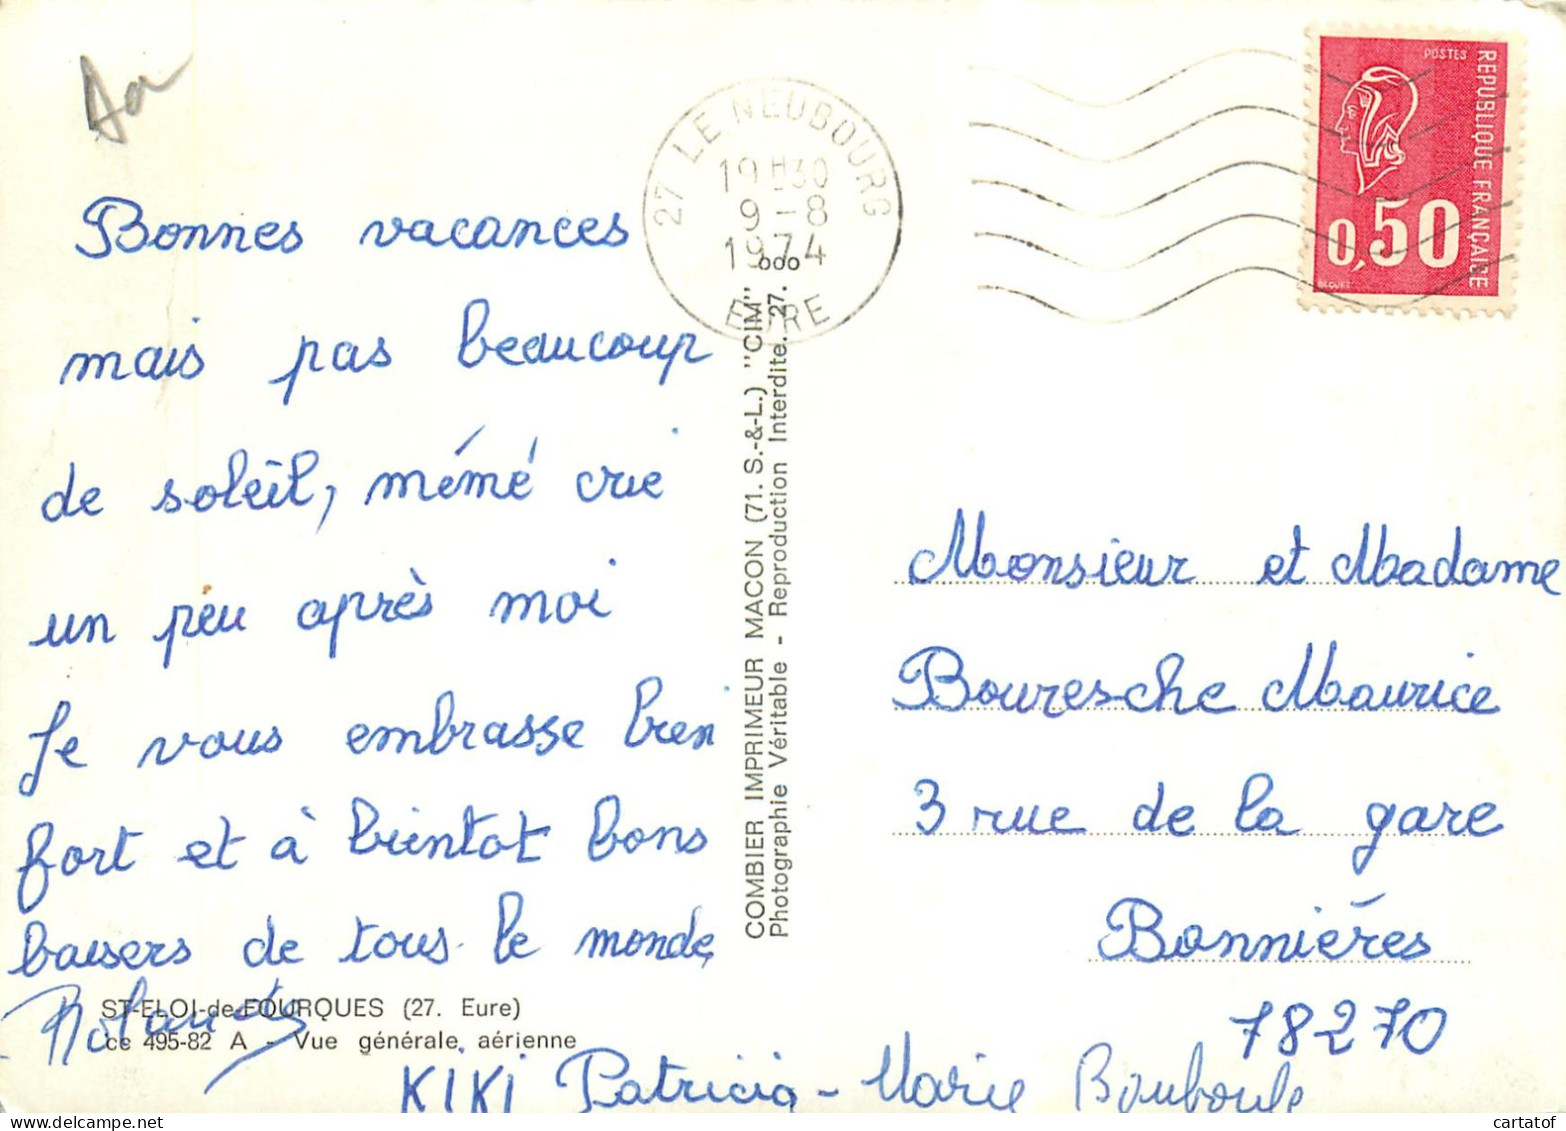 Bonnes vacances
mais pas beaucoup
de soleil, mémé crie
un peu après moi
Je vous embrasse bien
fort et à bientot bons
baisers de tous le monde
ST-ELOI-de-FOURQUES (27. Eure)
495-82 A - Vue générale aérienne
KIKI Patricia - Marie Bouboule
COMBIER IMPRIMEUR MACON (71. S.-&-L.) "CIM"
Photographie Véritable - Reproduction Interdite. 27. ooo
27 LE NEUBOURG
19H30
9-8
1974
EURE
POSTES
REPUBLIQUE FRANÇAISE
0,50
BEQUET
Monsieur et Madame
Bouresche Maurice
3 rue de la gare
Bonniéres
78270
cartatof